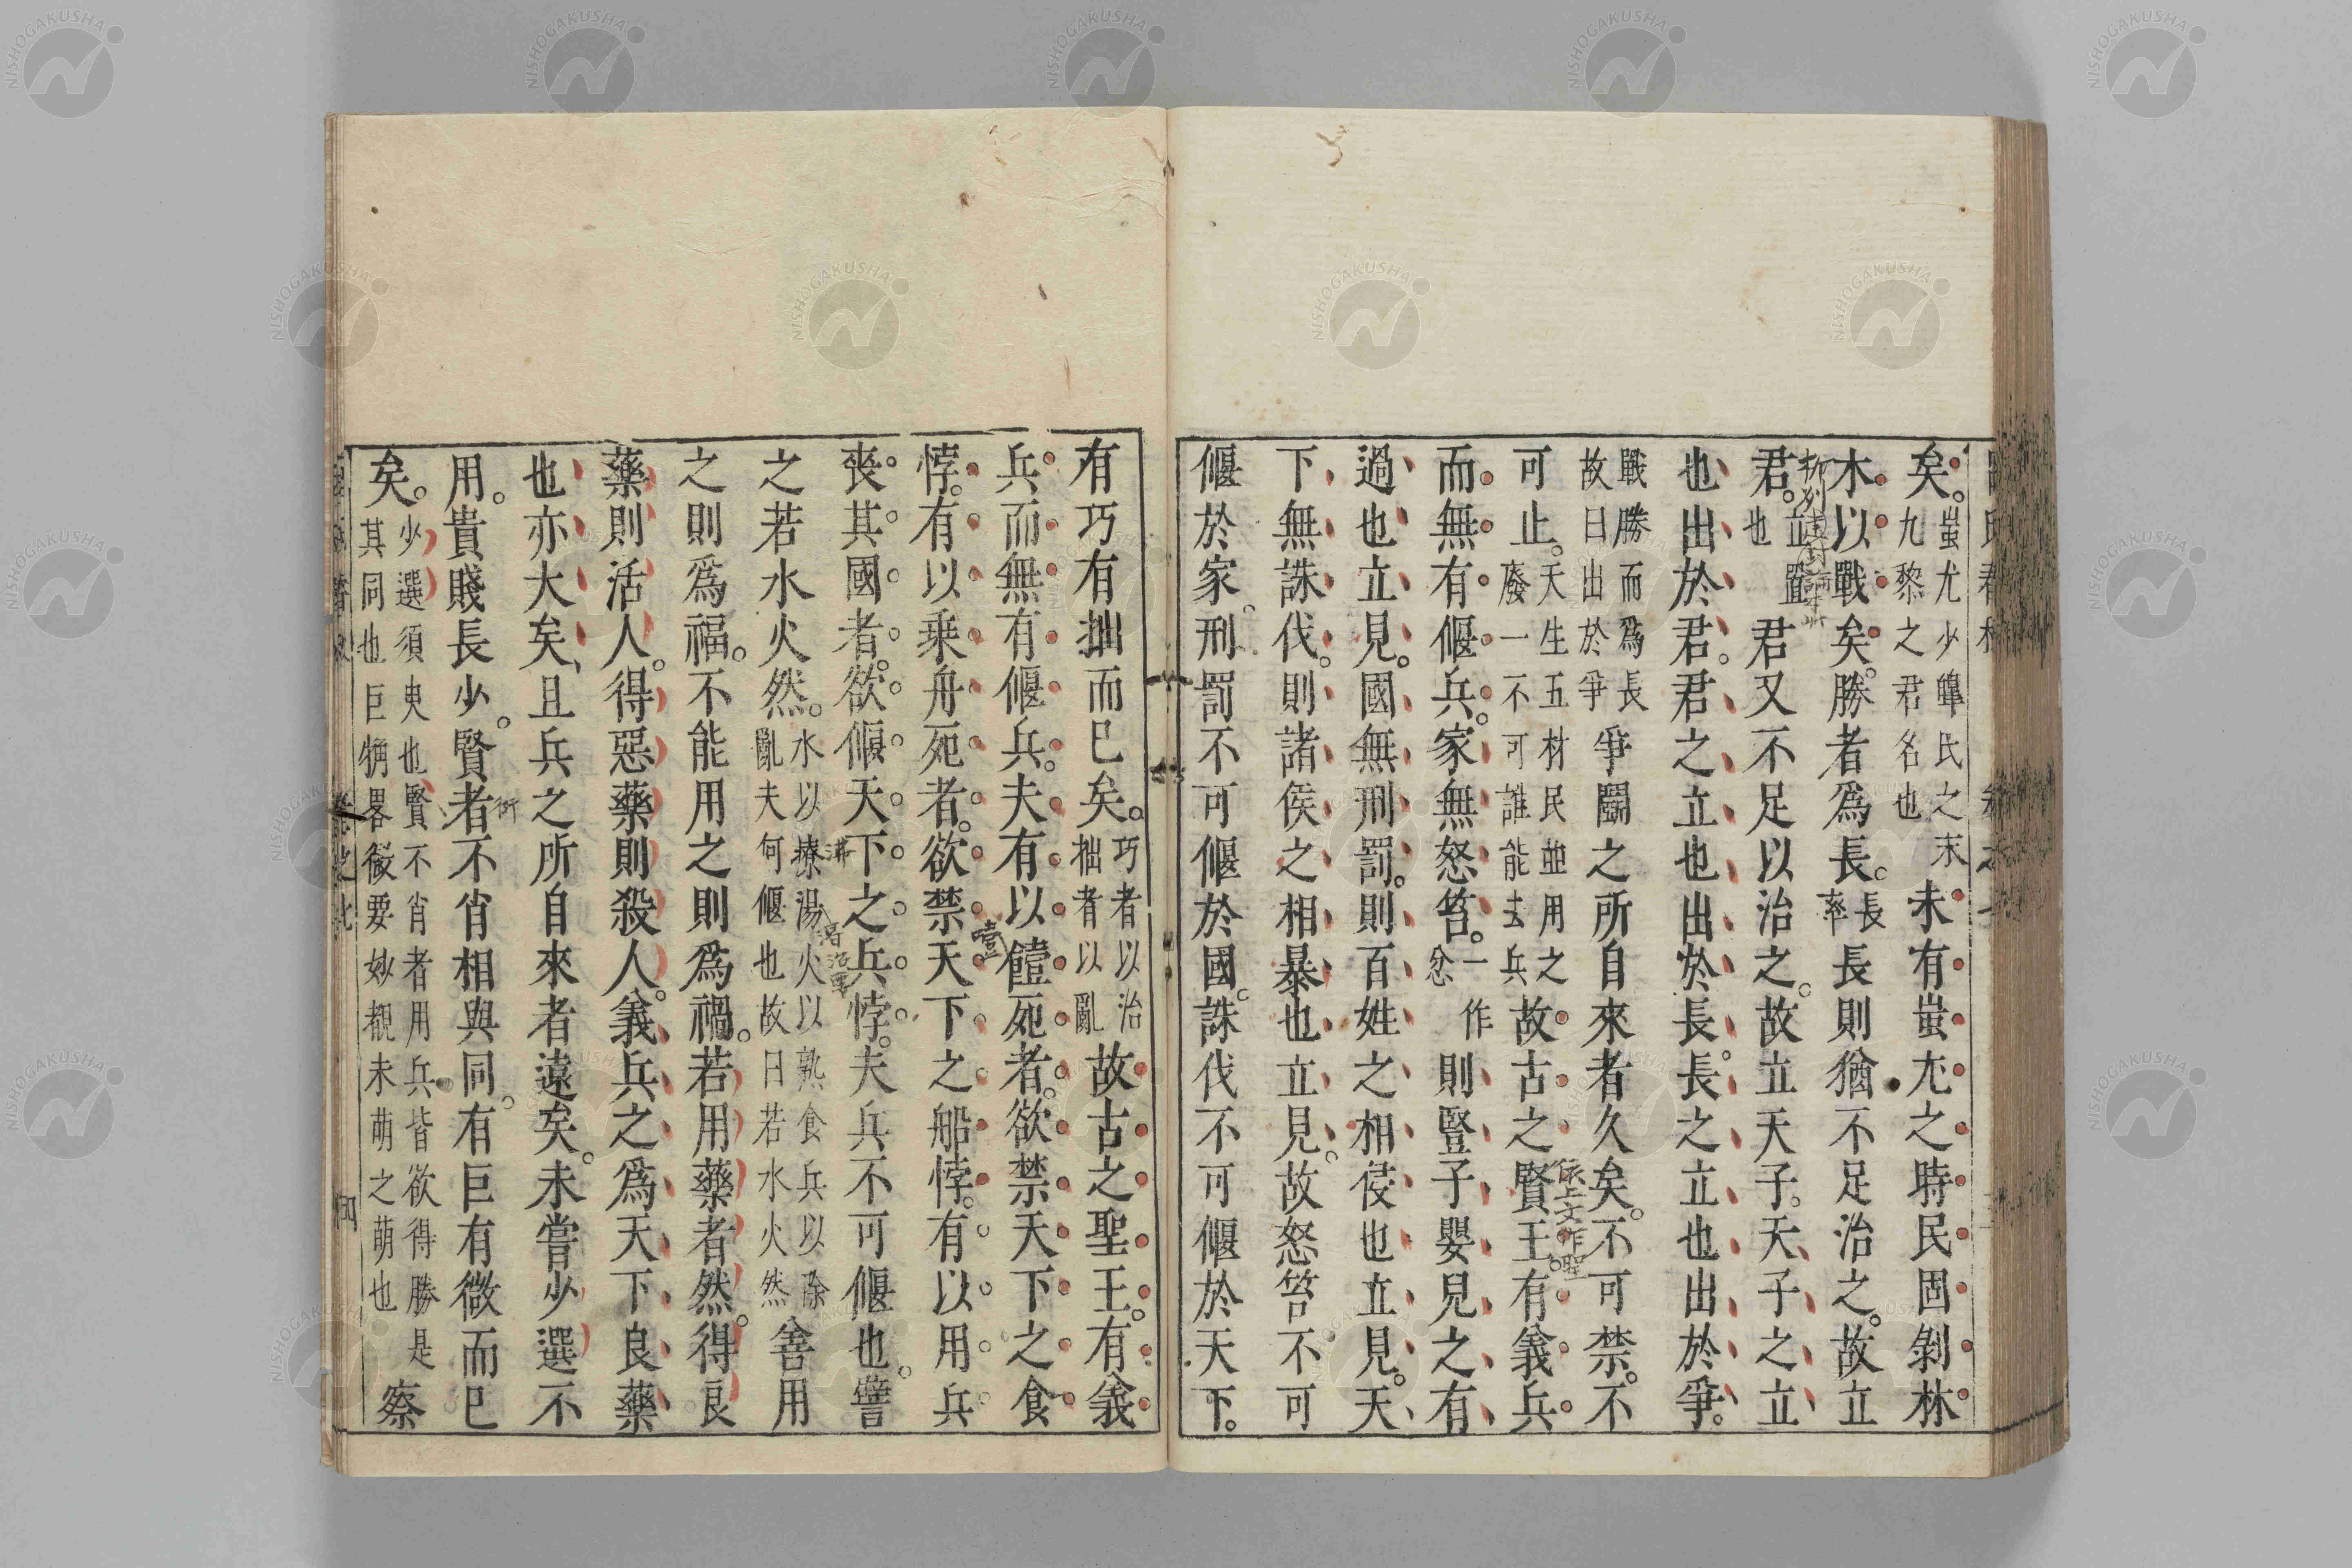 矣。蚩尤少皡氏之末九黎之君名也未有蚩尤之時民固剝林
木以戰矣。勝者爲長。長率長則猶不足治之。故立
君。立置也君又不足以治之。故立天子。天子之立
也出於君。君之立也出於長。長之立也出於爭。
戰勝而爲長故曰出於爭爭鬭之所自來者久矣。不可禁。不
可止。天生五材民並用之廢一不可誰能去兵故古之賢王。有義兵
而無有偃兵。家無怒笞。一作忿則豎子嬰兒之有
過也立見。國無刑罰。則百姓之相侵也立見。天
下無誅伐。則諸侯之相暴也立見。故怒笞不可
偃於家。刑罰不可偃於國。誅伐不可偃於天下。
有巧有拙而已矣。巧者以治拙者以亂故古之聖王。有義
兵而無有偃兵。夫有以饐死者。欲禁天下之食
悖。有以乗舟死者。欲禁天下之船悖。有以用兵
喪其國者。欲偃天下之兵悖。夫兵不可偃也。譬
之若水火然。水以療湯火以熟食兵以除亂夫何偃也故曰若水火然善用
之則爲福。不能用之則爲禍。若用藥者然。得良
藥則活人。得惡藥則殺人。義兵之爲天下良藥
也亦大矣、且兵之所自來者遠矣。未嘗少選不
用。貴賤長少。賢者不肖相與同。有巨有微而已
矣。少選須臾也賢不肖者用兵皆欲得勝是其同也巨觕畧微要妙覩未萌之萌也察
依上文作聖